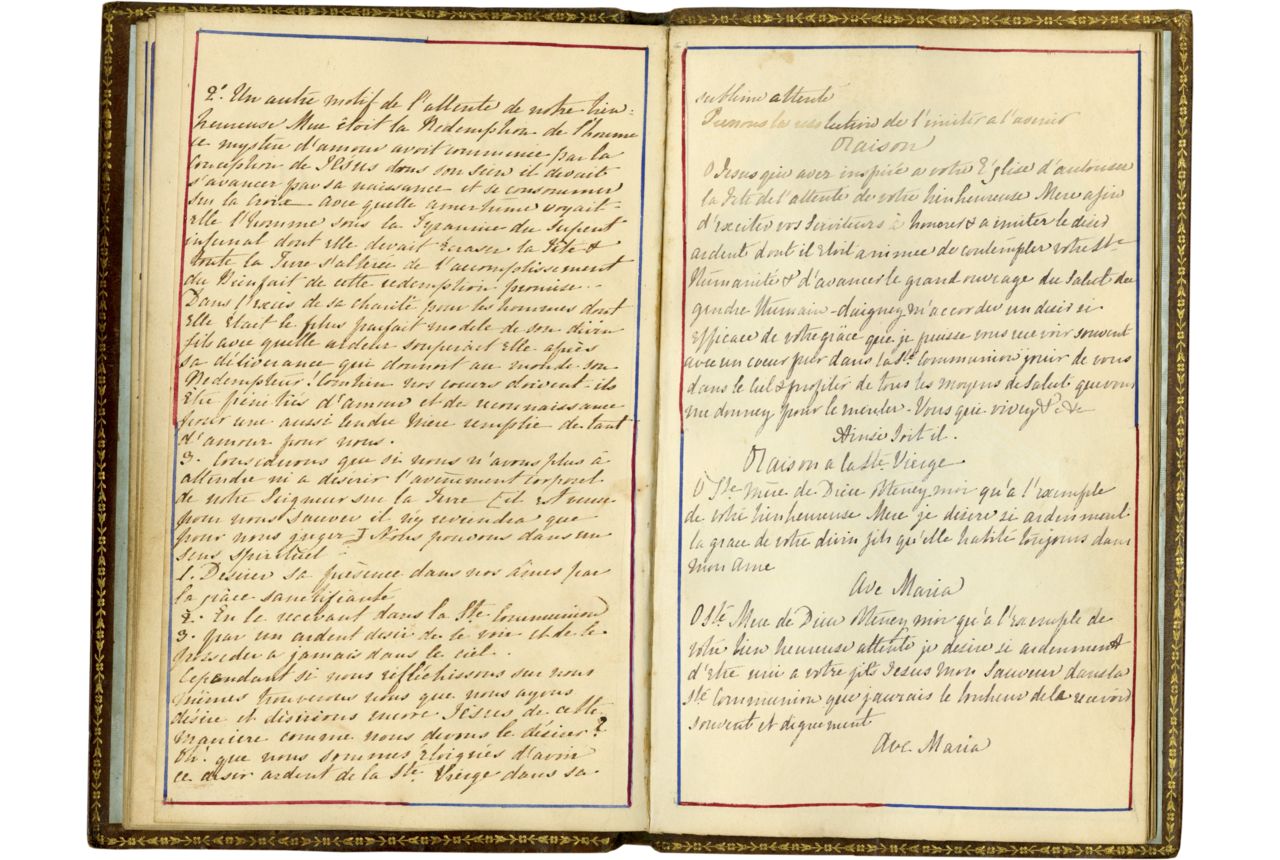 2.° Un autre motif de l'attente de notre bien-
heureuse Mere étoit la Redemption de l'homme
ce mystère d'amour avoit commencé par la
conception de Jésus dans son sein il devait
s'avancer par sa naissance et se consommer
sur la Croix - Avec quelle amertume voyait-
Elle l'homme sous la Tyrannie du Serpent
infernal dont Elle devait Ecraser la Tête &
toute la Terre s'altérée de l'accomplissement
du Bienfait de cette redemption promise -
Dans l'exces de sa charité pour les hommes dont
Elle Etait le plus parfait modele de son divin
fils avec quelle ardeur soupirait Elle après
sa délivrance qui donnoit au monde son
Redempteur. Combien nos coeurs doivent-ils
Etre pénétrés d'amour et de reconnaissance
pour une aussi tendre Mere remplie de tant
d'amour pour nous.
3. Considerons que si nous n'avons plus à
attendre ni a desirer l'avénement corporel
de notre Seigneur sur la Terre [il est venu
pour nous sauver il n'y reviendra que
pour nous juger] Nous pouvons dans un
sens spirituel -
1. Desirer sa présence dans nos âmes par
la grâce sanctifiante
2. En le recevant dans la Ste Communion
3. par un ardent desir de le voir et de le
posseder a jamais dans le ciel.
Cependant si nous refléchissons sur nous
mêmes trouverons nous que nous ayons
désiré et désirions encore Jésus de cette
maniere comme nous devons le désirer?
Oh! que nous sommes Eloignés d'avoir
ce desir ardent de la Ste Vierge dans sa
sublime attente
Prenons la resolution de l'imiter a l'avenir
Oraison
O Jesus qui avez inspiré a votre Eglise d'autoriser
la Fête de l'attente de votre bienheureuse Mere afin
d'exciter vos Serviteurs à honorer & a imiter le désir
ardent dont il Etoit animée de contempler votre Ste
Humanité & d'avancer le grand ouvrage du Salut du
gendre Humain - daignez m'accorder un desir si
Efficace de votre grâce que je puisse vous recevoir souvent
avec un coeur pur dans la Ste Communion jouir de vous
dans le Ciel & profiter de tous les moyens de Salut que vous
me donnez pour le meriter - Vous qui vivez &c &c
Ainsi Soit il.
Oraison a la Ste Vierge
O Ste Mère de Dieu obtenez moi qu'à l'exemple
de votre bienheureuse Mere je désire si ardemment
la grace de votre divin fils qu'elle habite toujours dans
mon Ame
Ave Maria
O Ste Mere de Dieu obtenez moi qu'à l'Exemple de
votre bien heureuse attente je desire si ardemment
d'Etre uni a votre fils Jesus mon Sauveur dans la
Ste Communion que j'aurais le bonheur de la recevoir
souvent et dignement
Ave Maria